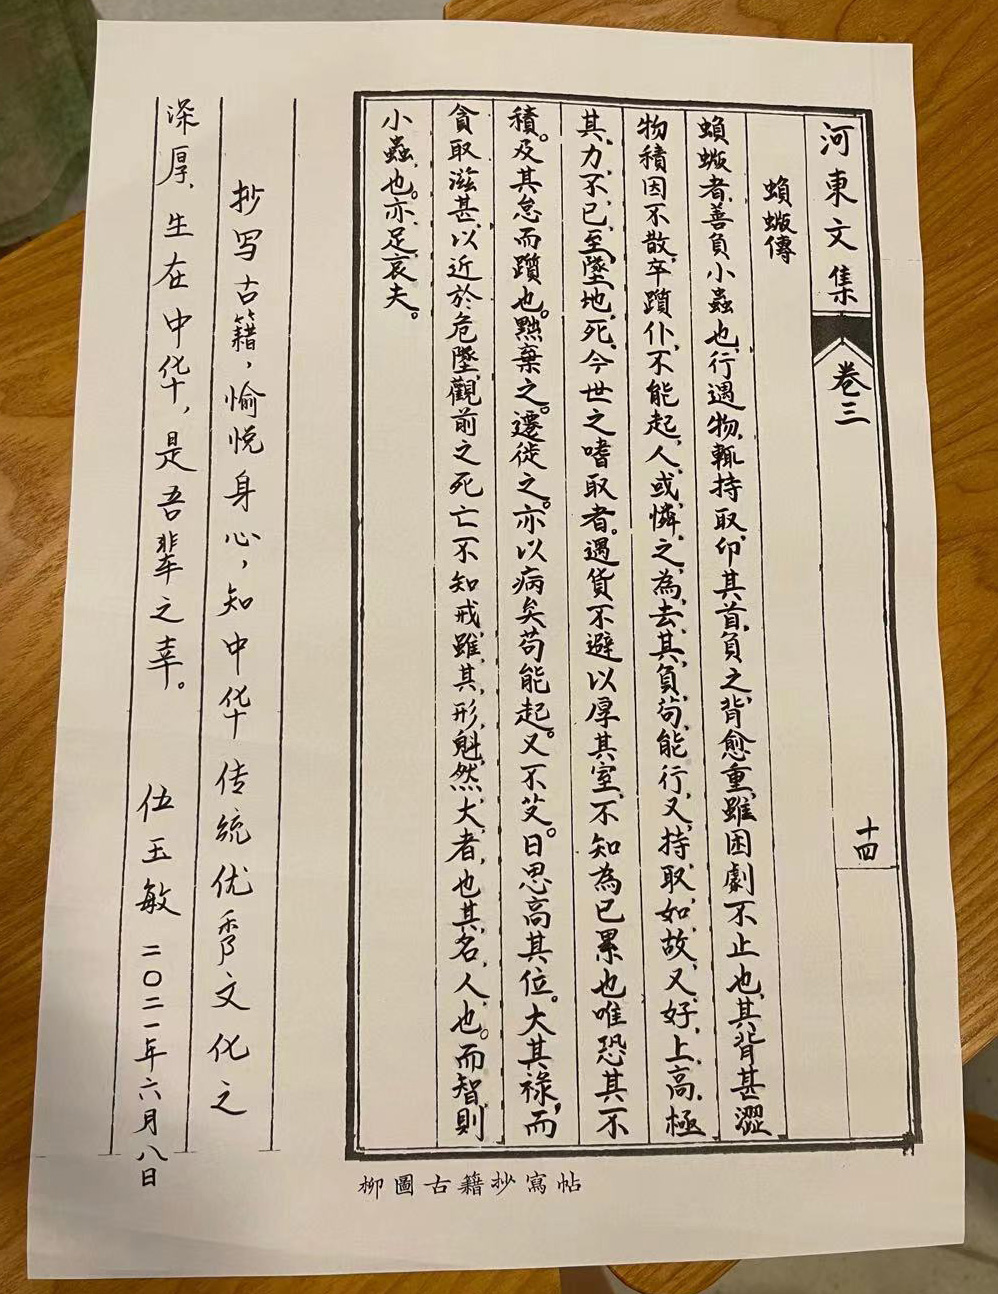 河東文集
卷三
十四
蝜蝂傳
蝜蝂者、善負小蟲也、行遇物、輒持取、卬其首、負之、背愈重、雖困劇不止也、其背甚澀
物積因不散、卒躓仆、不能起、人或憐之、為去其負、茍能行、又持取如故、又好上高、極
其力不已、至墜地死、今世之嗜取者。遇貨不避、以厚其室、不知為已累也、唯恐其不
積。及其怠而躓也。黜棄之。遷徙之。亦以病矣、茍能起。又不艾。日思高其位。大其祿、而
貪取滋甚、以近於危墜、觀前之死亡不知戒、雖其形魁然大者也、其名人也。而智則
小蟲也。亦足哀夫。
抄写古籍，愉悦身心，知中华传统优秀文化之
深厚、生在中华，是吾辈之幸。 伍玉敏 二〇二一年六月八日
柳圖古籍抄寫帖